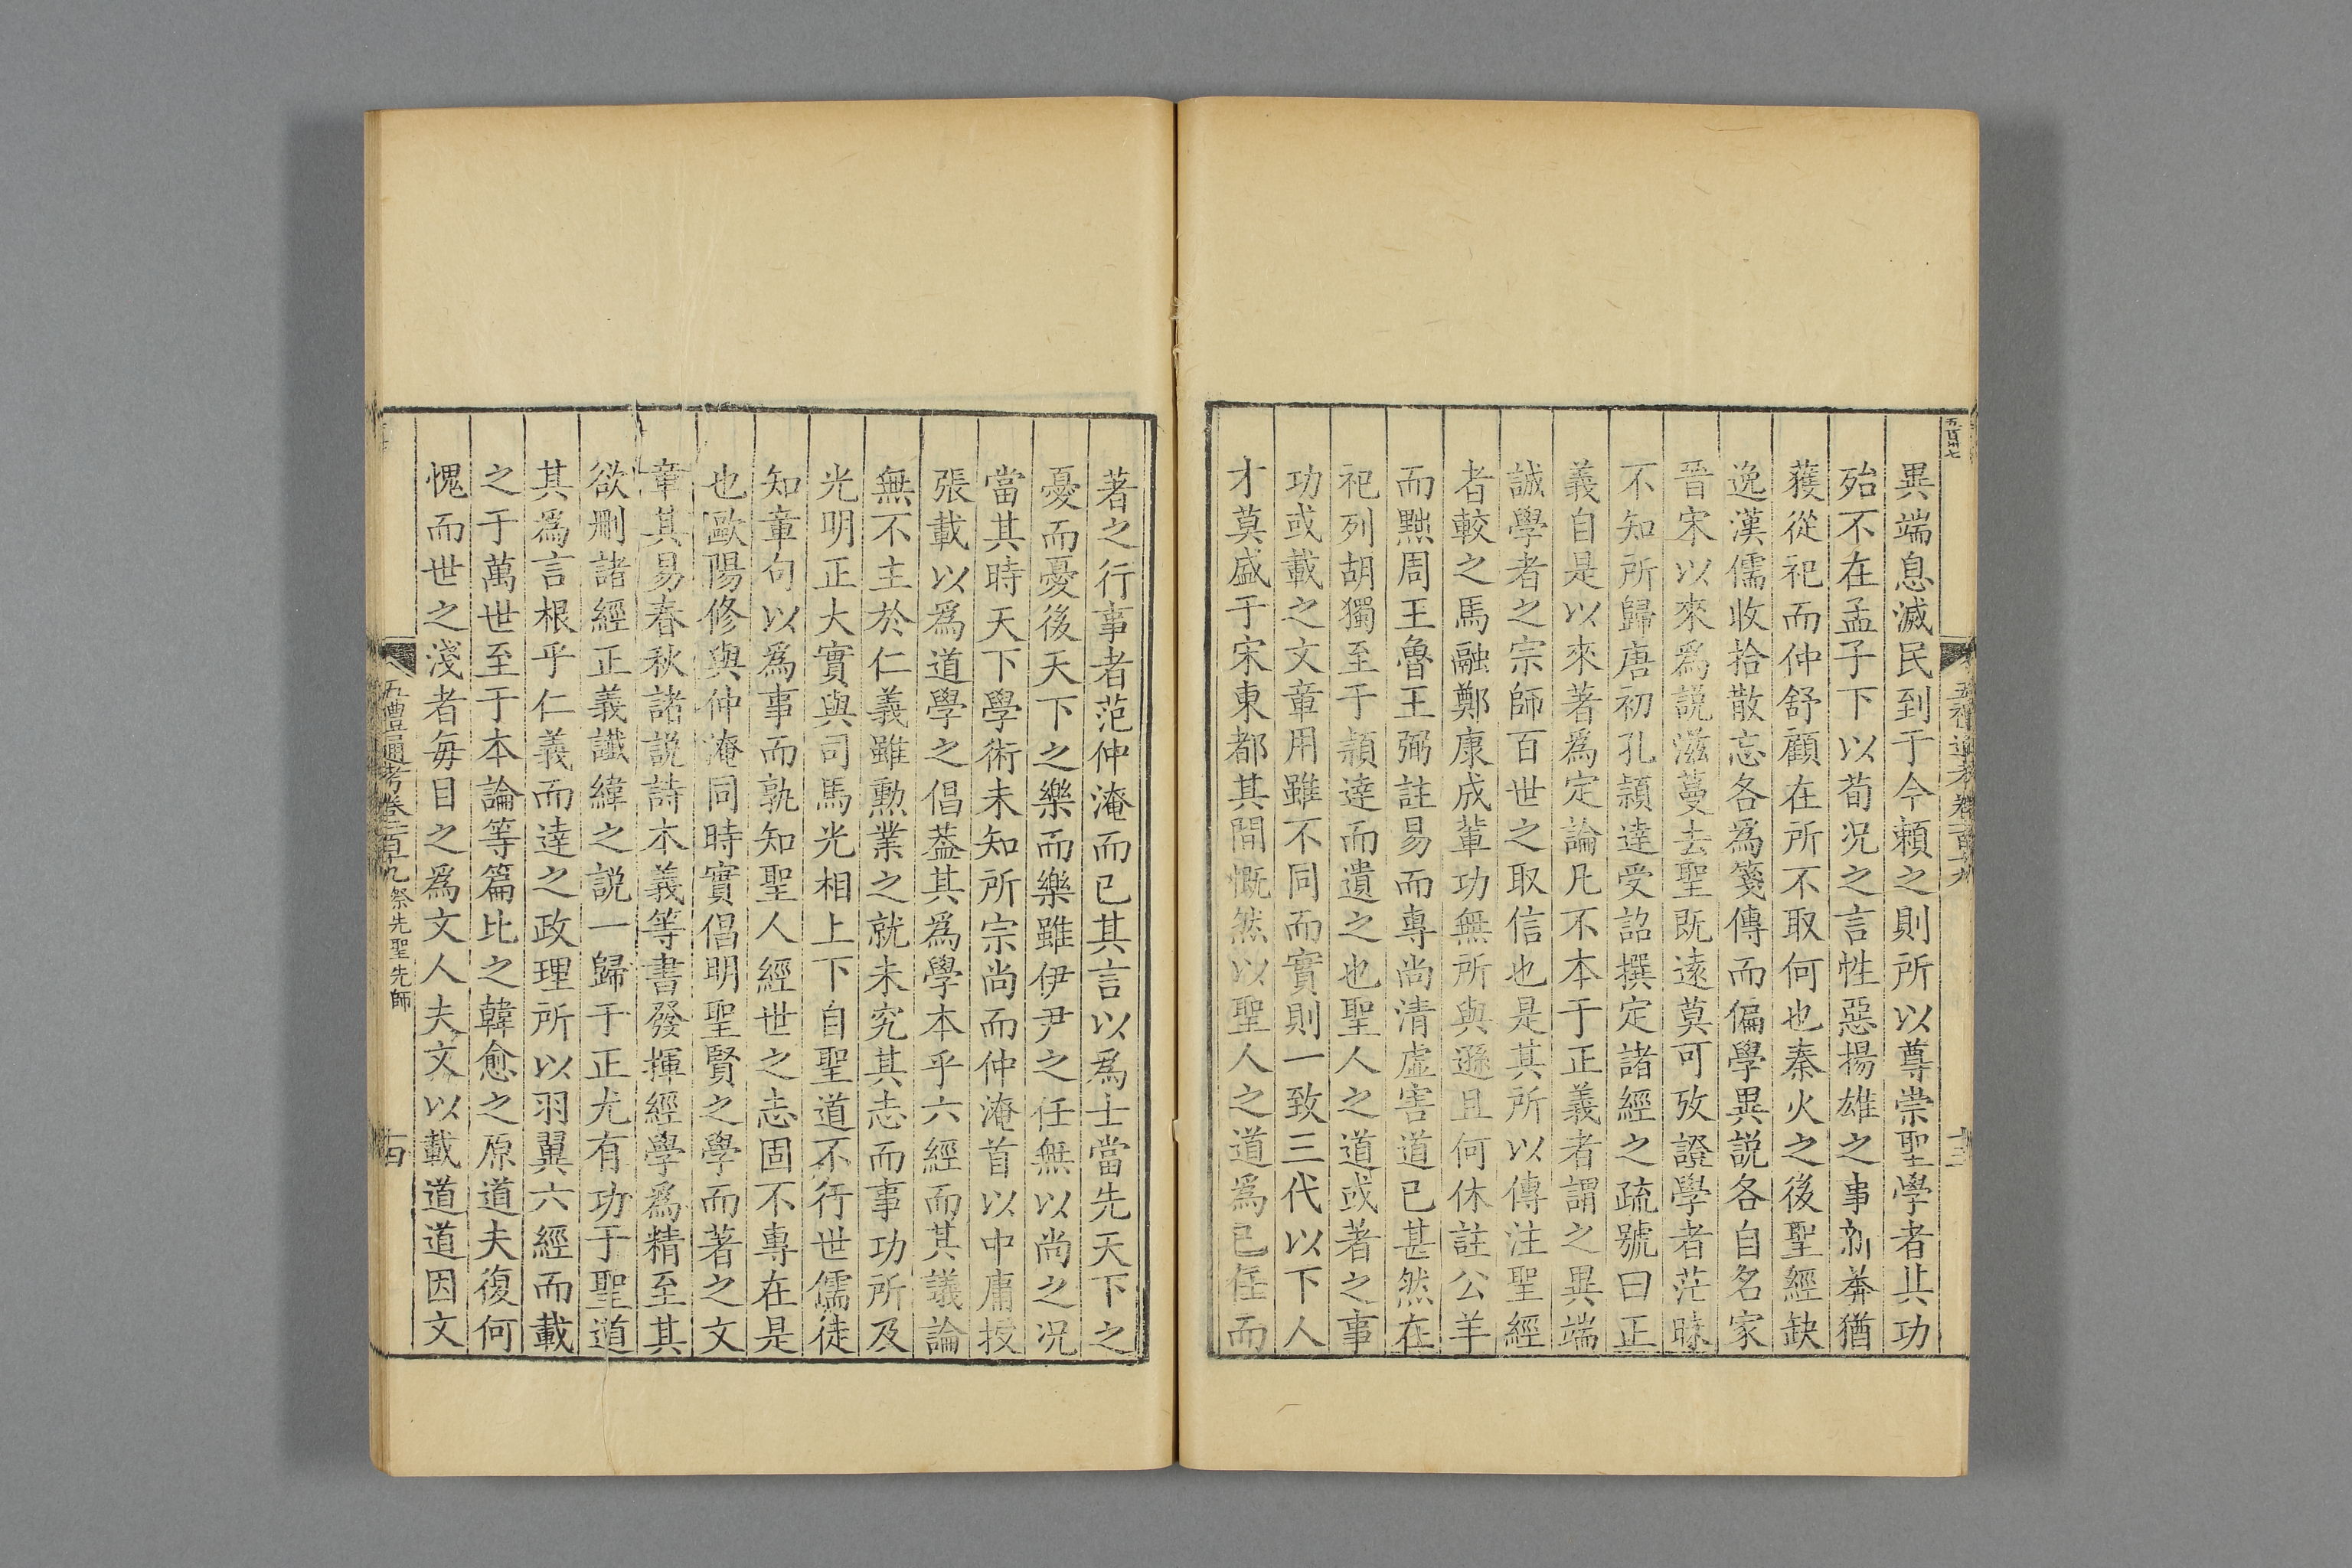 五百卅七
異端息滅民到于今頼之則所以尊崇聖學者其功
殆不在孟子下以荀况之言性惡揚雄之事新莽猶
獲從祀而仲舒顧在所不取何也秦火之後聖經缺
逸漢儒收拾散忘各爲箋傳而偏學異説各自名家
晉宋以來爲説滋蔓去聖既遠莫可攷證學者茫昧
不知所歸唐初孔頴達受詔撰定諸經之疏號曰正
義自是以來著爲定論凡不本于正義者謂之異端
誠學者之宗師百世之取信也是其所以傳注聖經
者較之馬融鄭康成輩功無所與遜且何休註公羊
而黜周王魯王弼註易而專尚清虛害道已甚然在
祀列胡獨至于頴達而遺之也聖人之道或著之事
功或載之文章用雖不同而實則一致三代以下人
才莫盛于宋東都其間慨然以聖人之道爲己任而
著之行事者范仲淹而已其言以爲士當先天下之
憂而憂後天下之樂而樂雖伊尹之任無以尚之况
當其時天下學術未知所宗尚而仲淹首以中庸授
張載以爲道學之倡葢其爲學本乎六經而其議論
無不主於仁義雖勲業之就未究其志而事功所及
光明正大實與司馬光相上下自聖道不行世儒徒
知章句以爲事而孰知聖人經世之志固不專在是
也歐陽修與仲淹同時實倡明聖賢之學而著之文
章其易春秋諸説詩本義等書發揮經學爲精至其
欲刪諸經正義讖緯之説一歸于正尤有功于聖道
其爲言根乎仁義而達之政理所以羽翼六經而載
之于萬世至于本論等篇比之韓愈之原道夫復何
愧而世之淺者毎目之爲文人夫文以載道道因文
五禮通考卷一百十九 祭先聖先師 十四